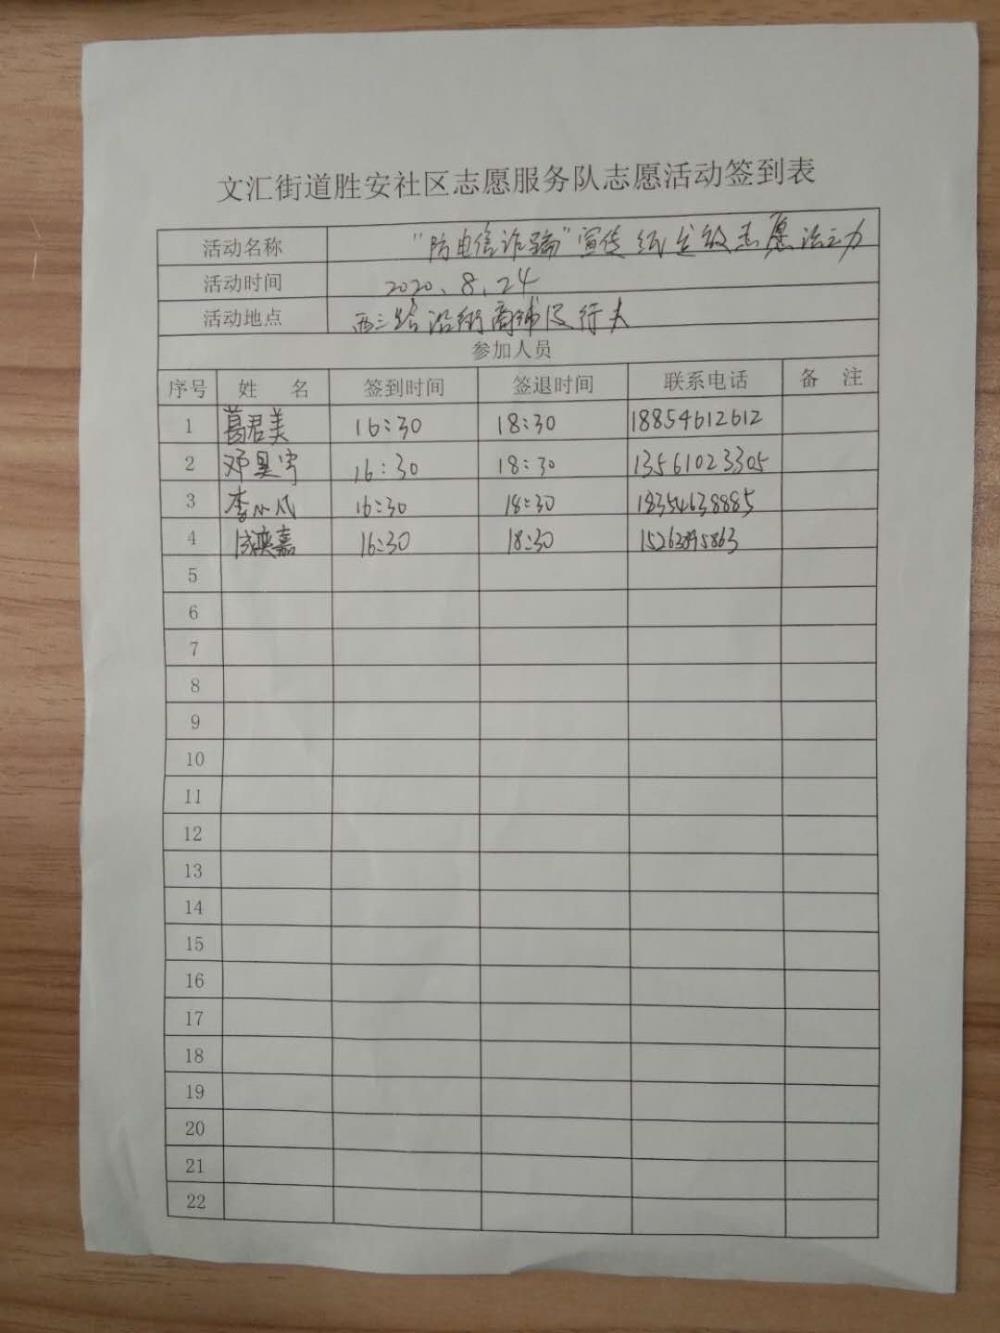 文汇街道胜安社区志愿服务队志愿活动签到表
活动名称 "防电信诈骗"宣传纸发放志愿活动
活动时间 2020.8.24
活动地点 西三路沿街商铺及行人
参加人员
序号 姓 名 签到时间 签退时间 联系电话 备 注
1 葛君美 16:30 18:30 18854612612
2 邓昊宇 16:30 18:30 13561023305
3 李小凡 16:30 18:30 18354638885
4 16:30 18:30
5
6
7
8
9
10
11
12
13
14
15
16
17
18
19
20
21
22